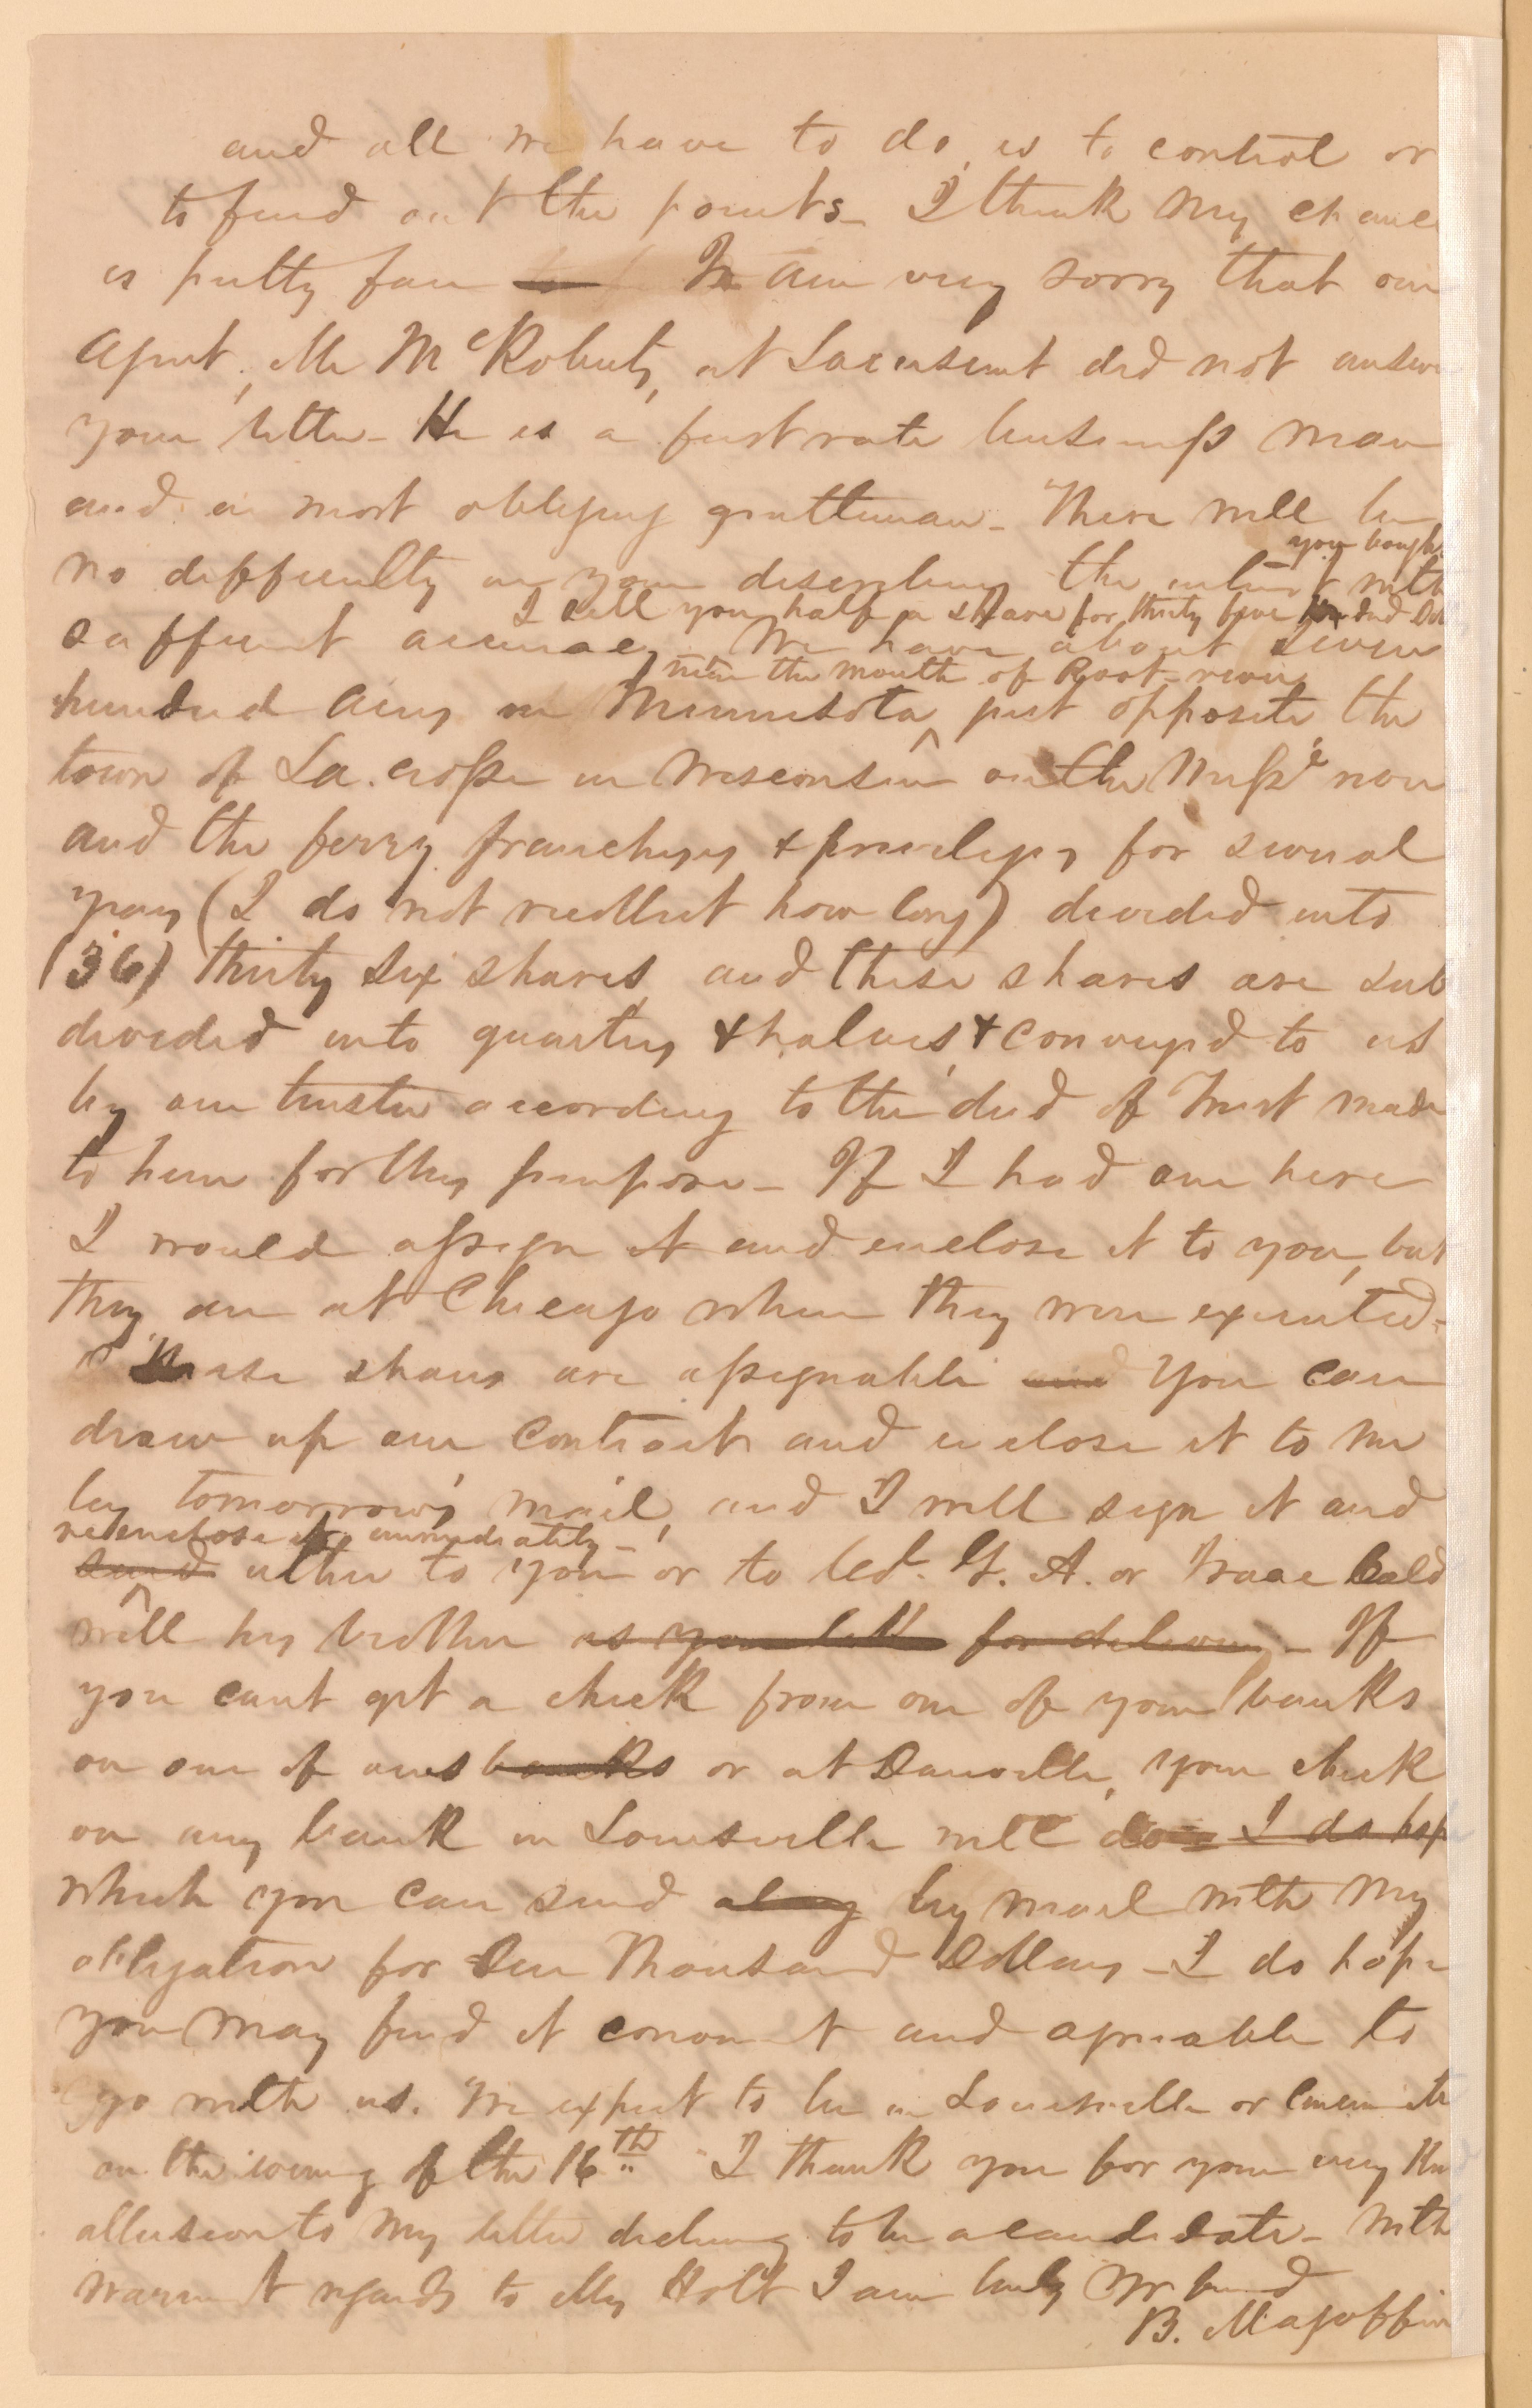 and all we have to do, is to control or
to find out the points_ I think my chance
is pretty fair I am very sorry that our
agent, Mr McRoberts, at Lacrescent did not answer
your letter_ He is a first rate business man
and a most obliging gentleman_ There will be
you bought
no difficulty in your describing the interest with
I sell you half a share for thirty five hundred Dol
sufficient accuracy We have about seven
near the mouth of Root river
hundred acres in Minnesota, just opposite the
town of La.crosse in Wisconsin on the Misse now
and the ferry franchises & privileges for several
years (I do not recollect how long) divided into
(36) thirty six shares and these shares are sub
divided into quarters & halves, & conveyed to us
by our trustee according to the deed of Trust made
to him for this purpose_ If I had one here
I would assign it and enclose it to you, but
they are at Chicago where they were executed_
These shares are assignable and You can
draw up our contract and enclose it to me
by tomorrow's mail, and I will sign it and
re-enclose it immediately_
send either to you or to Col. G. A. or Isaac Cald
well his brother as your letter for delivery_ If
you cant get a check from one of your banks
on one of ours banks or at Danville, your check
on any bank in Louisville will do_ I do hope
which you can send along by mail with my
obligation for One Thousand Dollars_ I do hope
you may find it convent and agreeable to
go with us. We expect to be in Louisville or Cincinnati
on the evening of the 16th I thank you for your very kin
allusion to my letter declining to be a candidate_ With
warmest regards to Mrs Holt I am truly yr friend
B. Magoffin